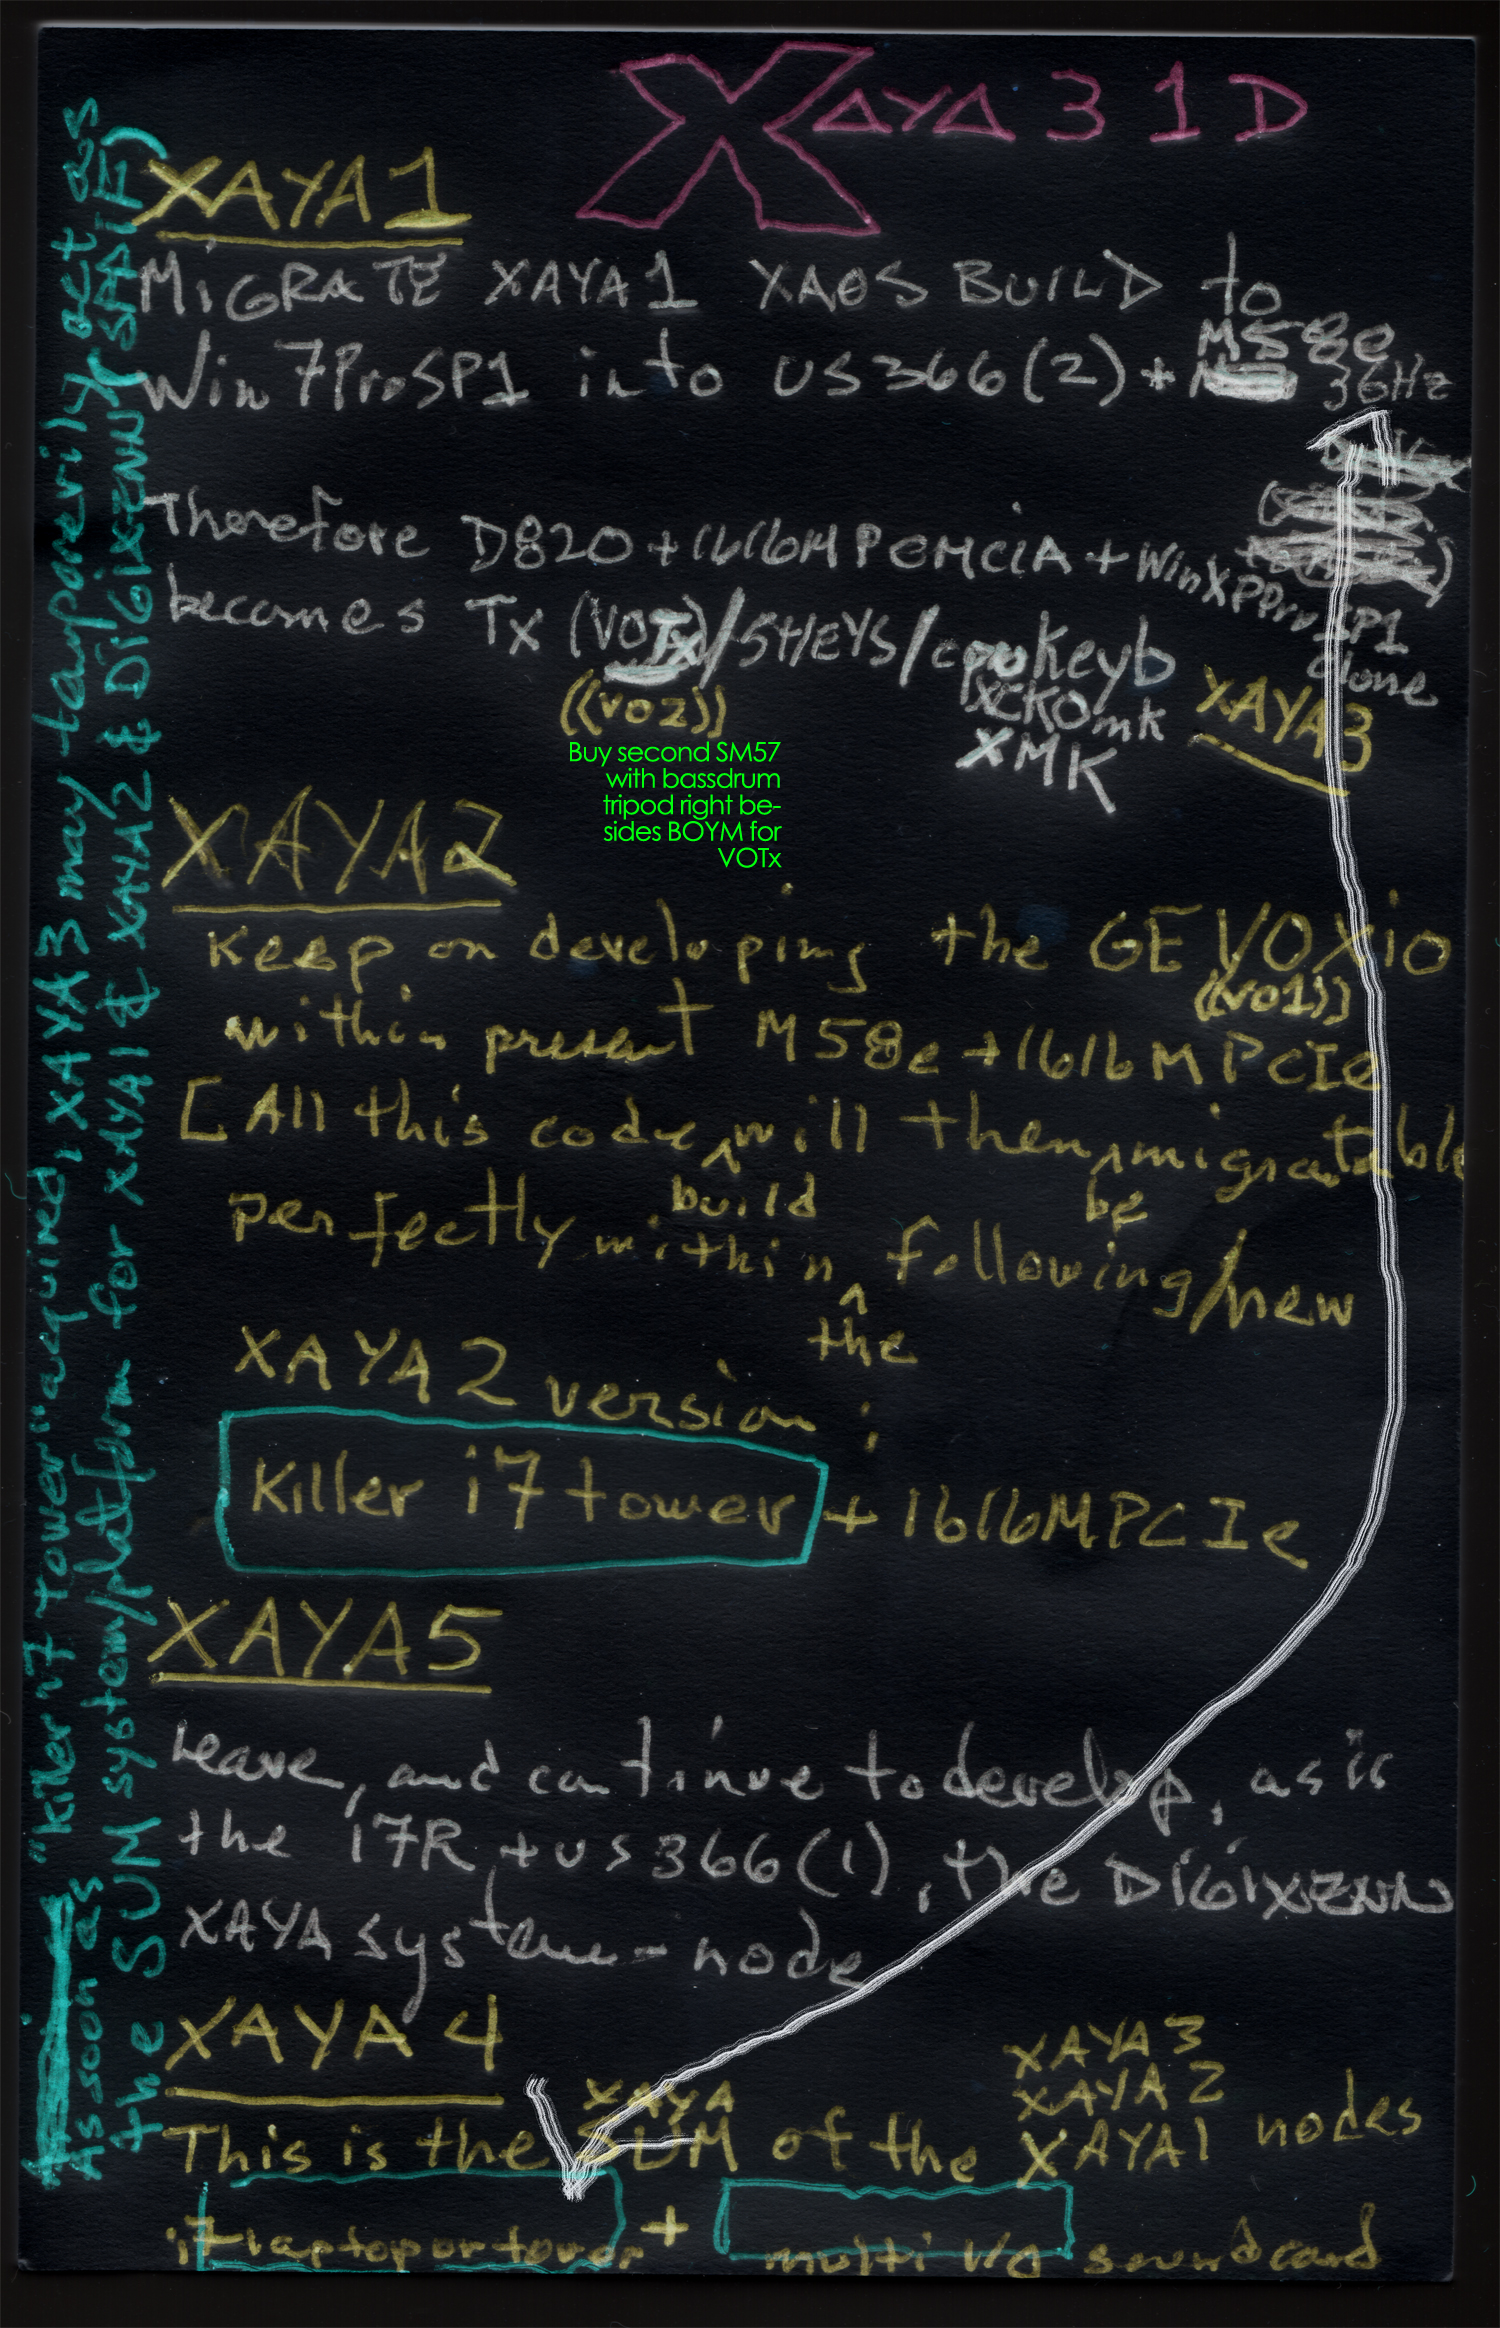 XAYA31D
XAYA1
MiGRATE XAYA1 XAOS BUILD to
Win 7ProSP1 into US366(2) + M58e
3GHz
Therefore D820 + 1616M PCMCiA + WinXPProSP1
clone
becomes Tx (VOTx)/5THEYS/cpukeyb
XCKOmk
XMK
((VO2))
XAYA3
Buy second SM57
with bassdrum
tripod right be-
sides BOYM for
VOTx
XAYA2
Keep on developing the GEVOXio
((VO1))
within present M58e + 1616M PCIe
[All this code will then migratable
build be
perfectly within following/new
the
XAYA2 version:
Killer i7 tower + 1616M PCIe
XAYA5
Leave, and continue to develop, as is
the i7R + US366(1), the DiGiXZNN
XAYA system-node
XAYA4
XAYA XAYA3
XAYA2
This is the SUM of the XAYA1 nodes
i7 laptop or tower + multi i/o soundcard
As soon as "killer i7 tower" acquired, XAYA3 may temporevily act as
the SUM system/platform for XAYA1 & XAYA2 & DiGiXZNN (SPAiE)